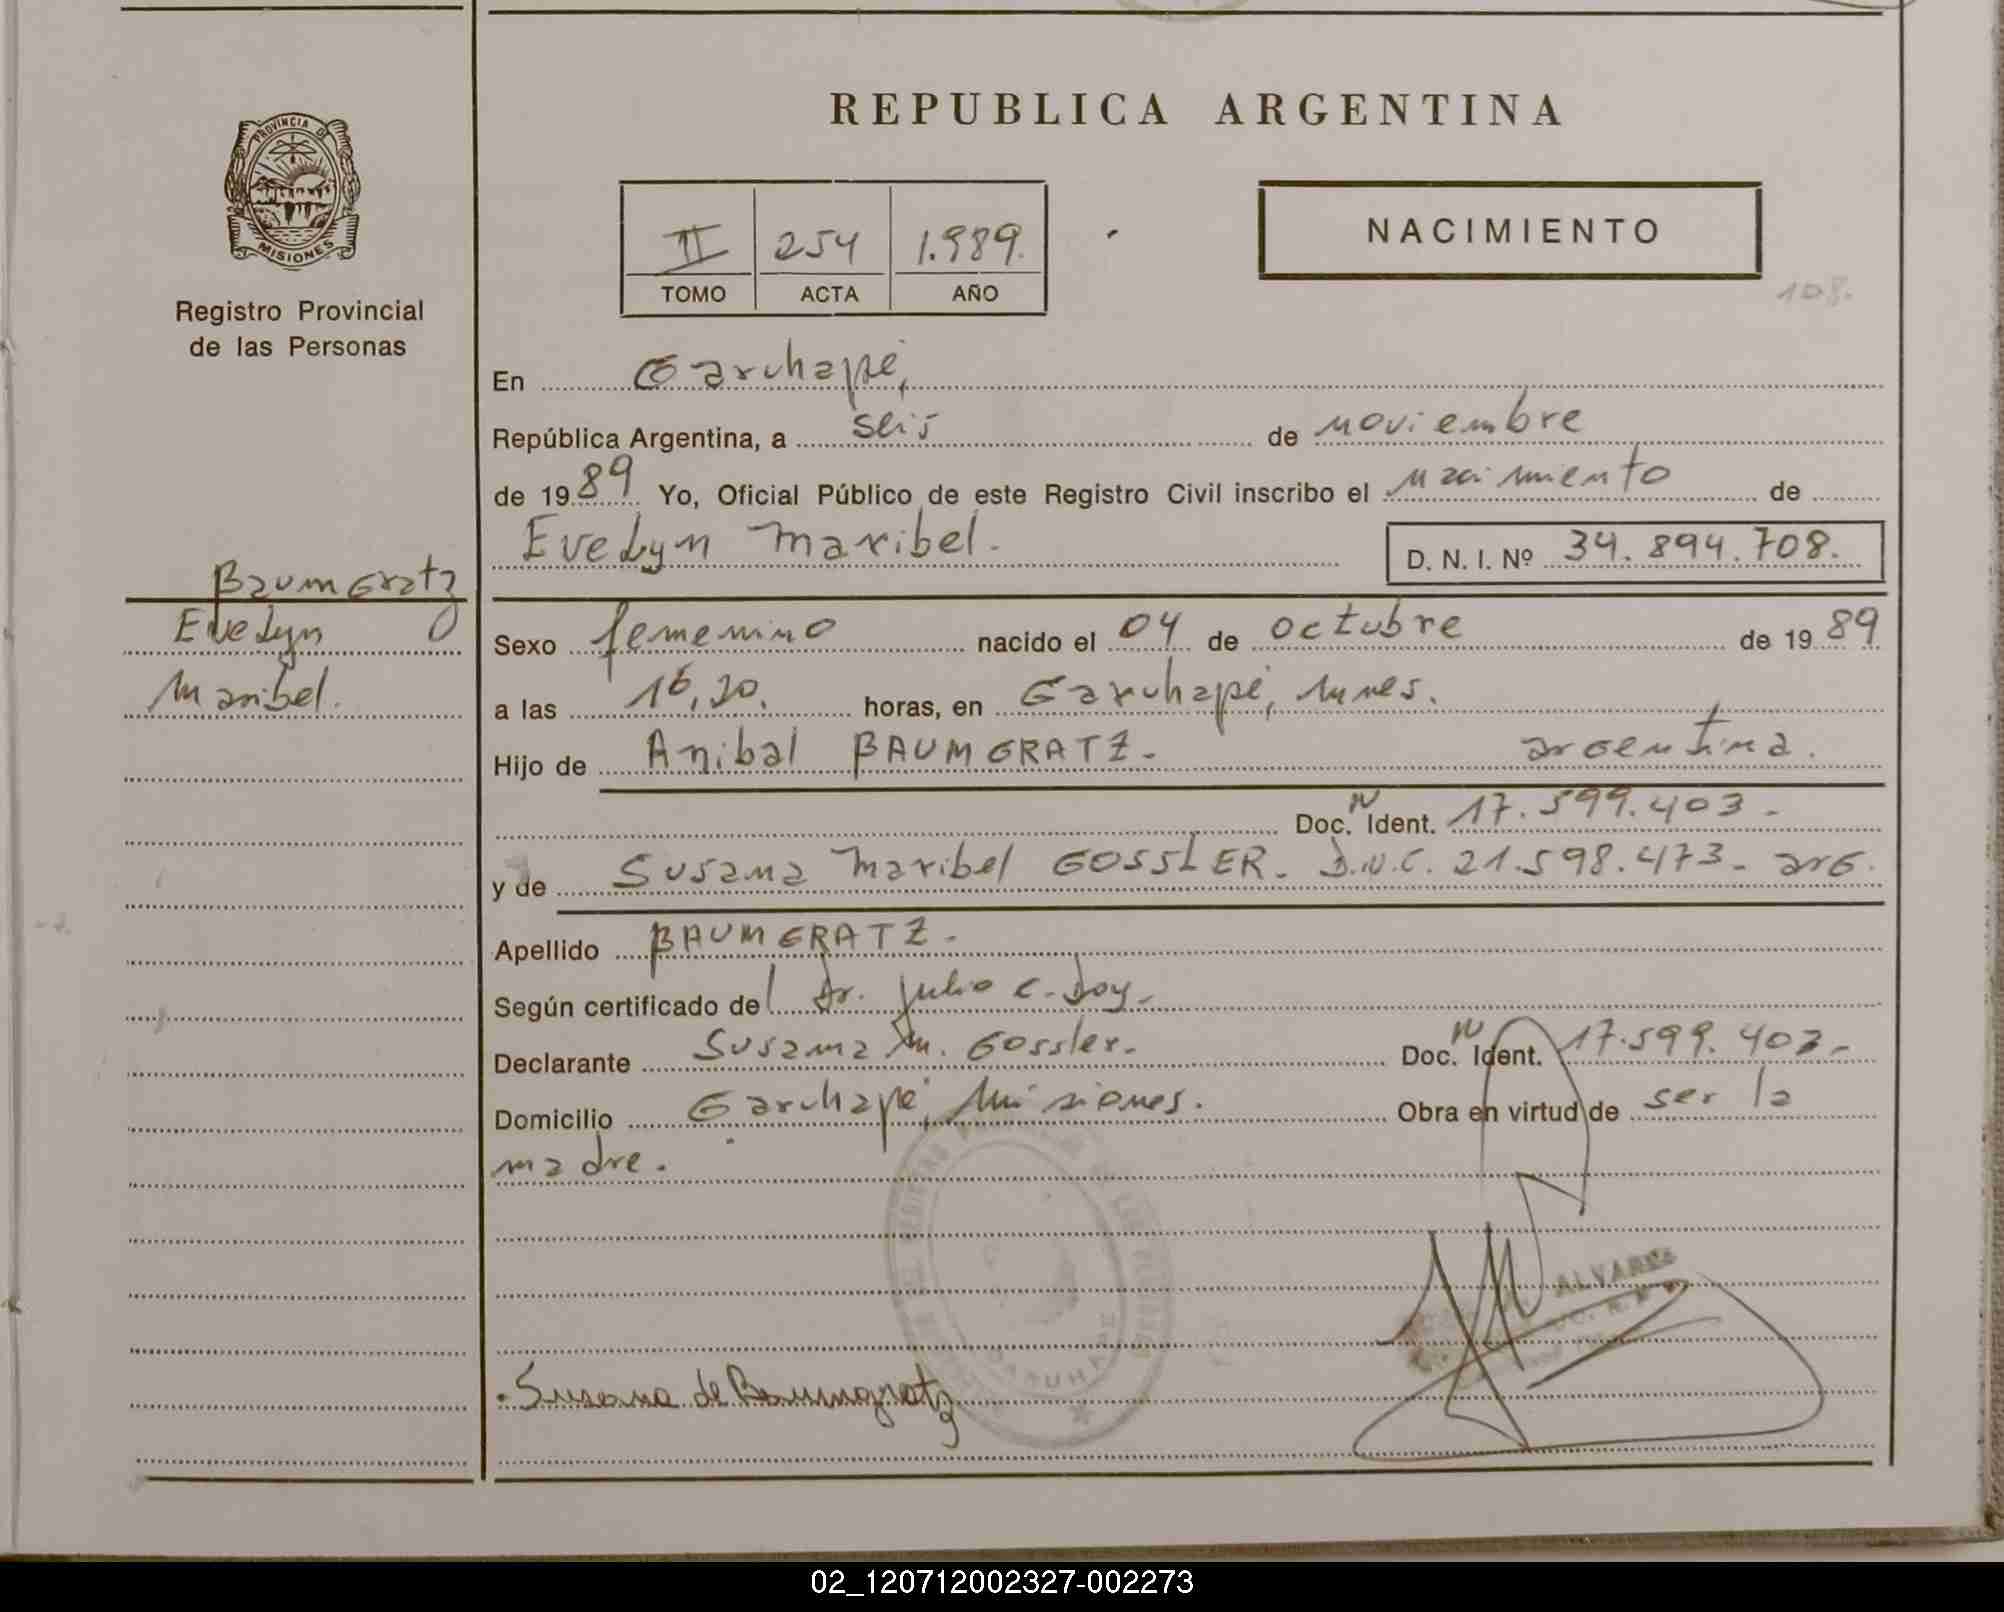 REPUBLICA ARGENTINA
PROVINCIA DE
MISIONES
Registro Provincial
de las Personas
II 254 1.989.
TOMO ACTA AÑO
NACIMIENTO
108.
En Garuhapé,
República Argentina, a seis de noviembre
de 1989 Yo, Oficial Público de este Registro Civil inscribo el nacimiento de
Evelyn Maribel. D. N. I. Nº 34.894.708.
Baumgratz
Evelyn
Maribel.
Sexo femenino nacido el 04 de octubre de 1989
a las 16,20. horas, en Garuhapé, Mnes.
Hijo de Anibal BAUMGRATZ- argentina.
Doc. N Ident. 17.599.403-
y de Susana Maribel GOSSLER- D.N.C. 21.598.473- arg.
Apellido BAUMGRATZ-
Según certificado del Dr. Julio C. Doy-
Declarante Susana M. Gossler- Doc. N Ident. 17.599.403-
Domicilio Garuhapé, Misiones. Obra en virtud de ser la
madre.
ALVAREZ
Susana de Baumgratz
02_120712002327-002273